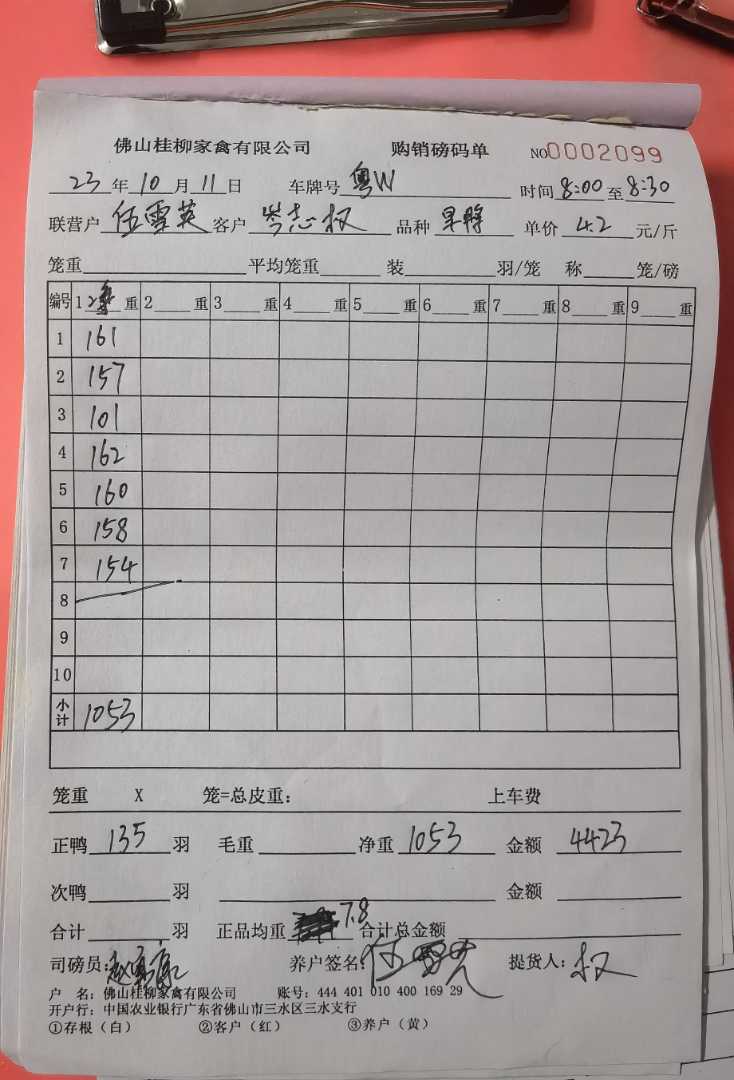 佛山桂柳家禽有限公司 购销磅码单 NO0002099
23年10月11日 车牌号 粤W 时间 8:00 至 8:30
联营户 伍雪英 客户 岑志权 品种 单价 4.2 元/斤
笼重 平均笼重 装 羽/笼 称 笼/磅
编号 1 重 2 重 3 重 4 重 5 重 6 重 7 重 8 重 9 重
1 161
2 157
3 101
4 162
5 160
6 158
7 154
8
9
10
小计 1053
笼重 X 笼=总皮重: 上车费
正鸭 135 羽 毛重 净重 1053 金额 4423
次鸭 羽 金额
合计 羽 正品均重 7.8 合计总金额
司磅员: 养户签名: 提货人: 权
户 名: 佛山桂柳家禽有限公司 账号: 444 401 010 400 169 29
开户行: 中国农业银行广东省佛山市三水区三水支行
①存根(白) ②客户(红) ③养户(黄)